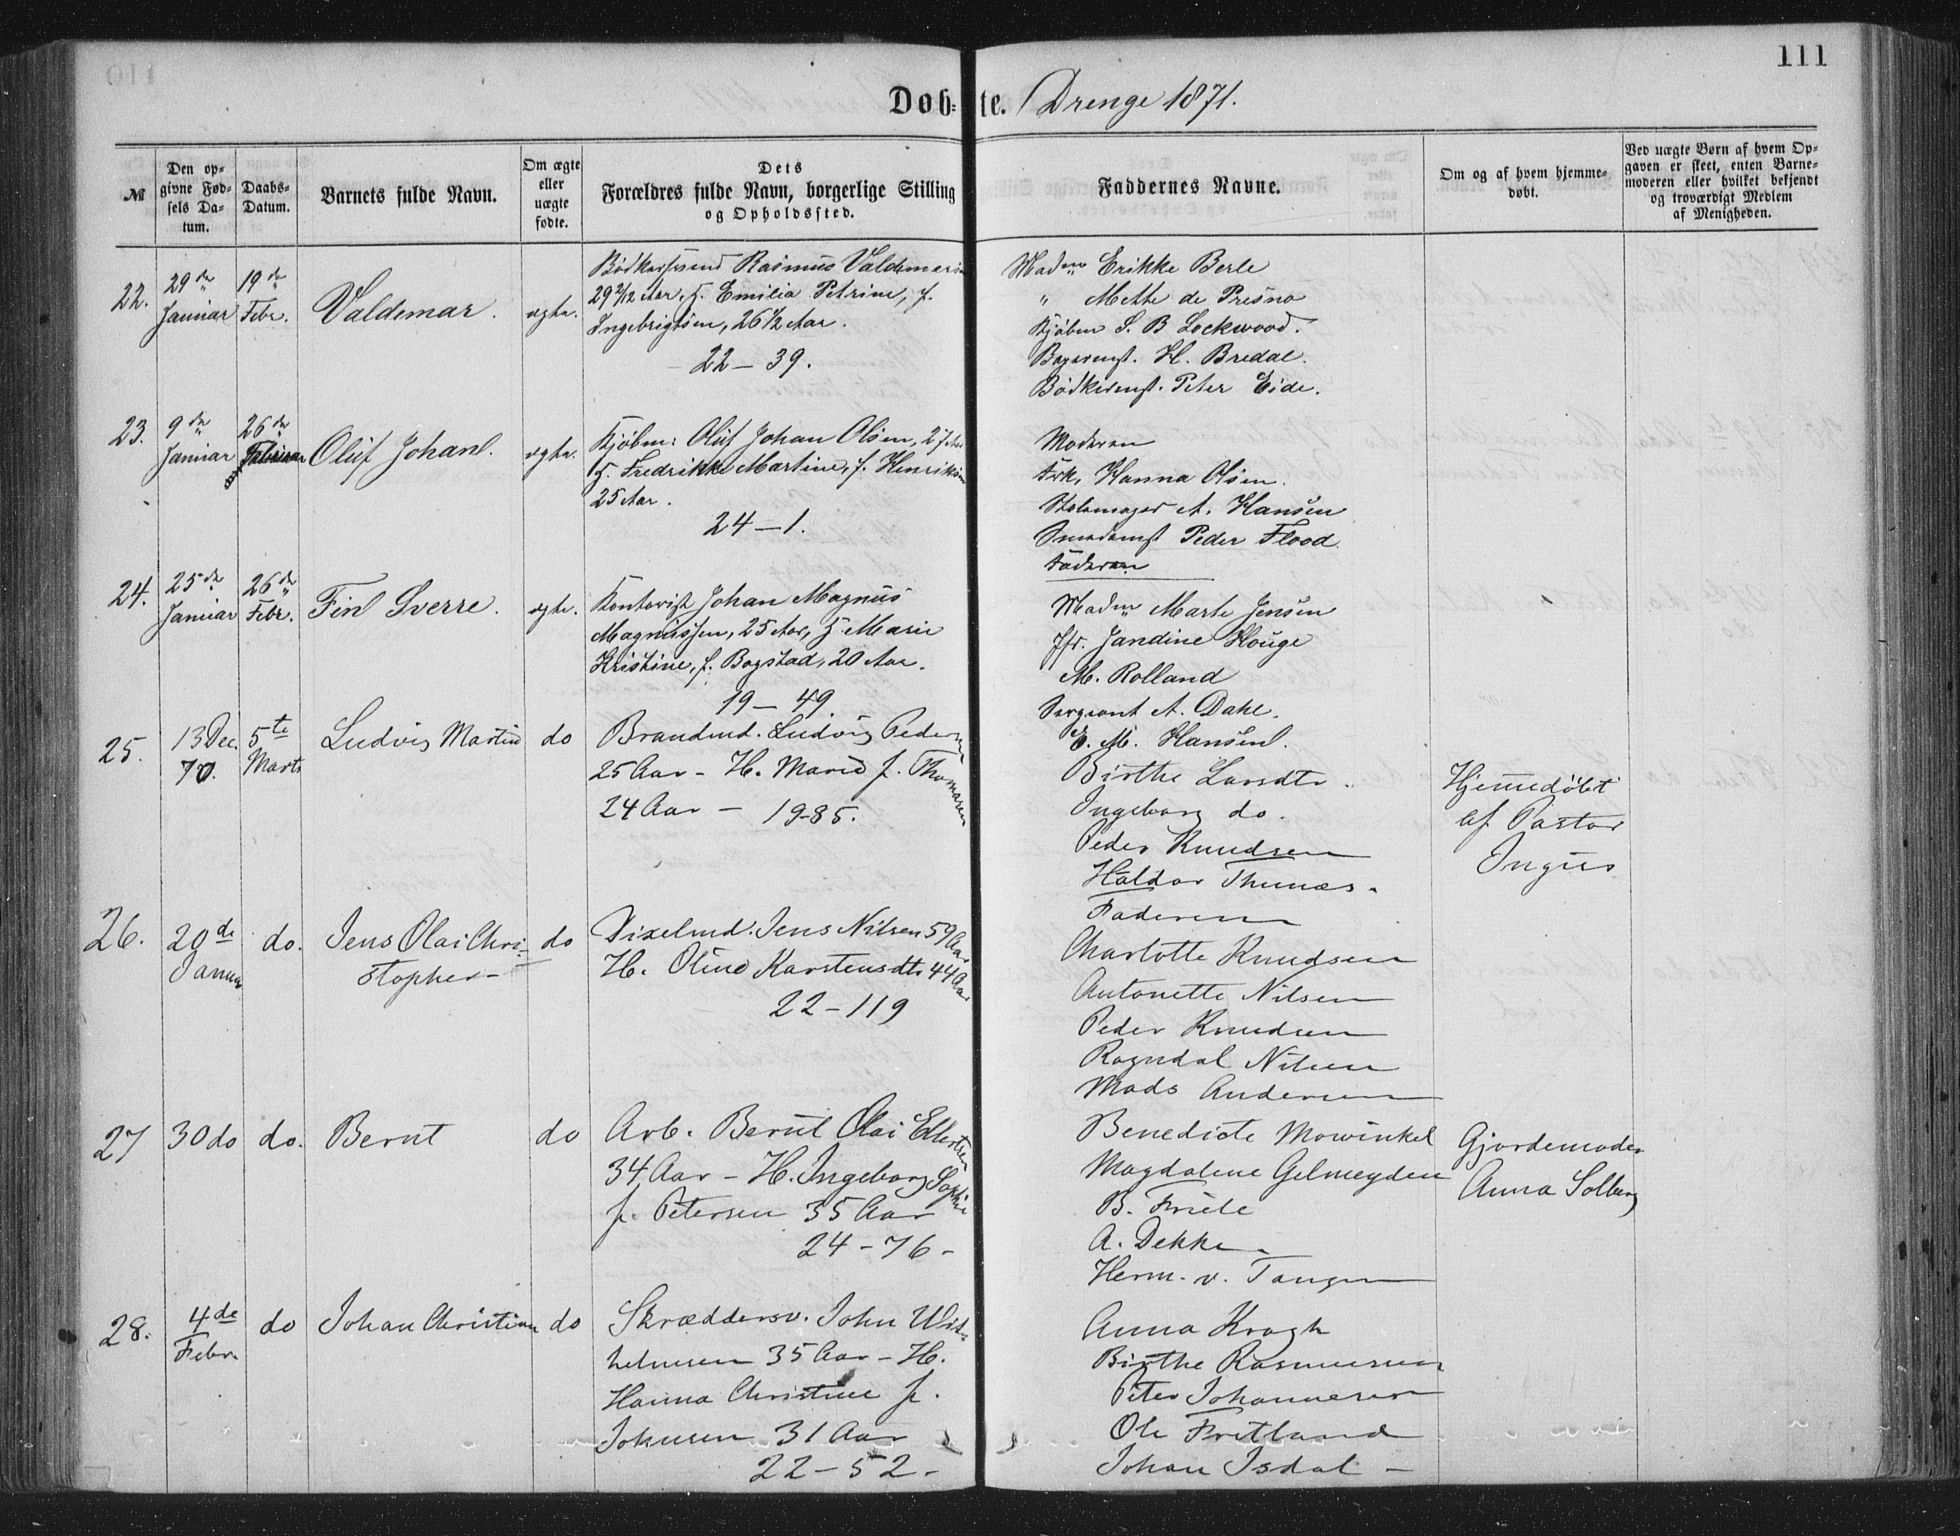 111
Døb- te. Drenge 1871.
№
Den op-
givne Fød-
sels Da-
tum.
Daabs-
Datum.
Barnets fulde Navn.
Om ægte
eller
uægte
fødte.
Dets
Forældres fulde Navn, borgerlige Stilling
og Opholdssted.
Faddernes Navne.
Om og af hvem hjemme-
døbt.
Ved uægte Børn af hvem Op-
gaven er skeet, enten Barne-
moderen eller hvilket bekjendt
og troværdigt Medlem
af Menigheden.
22.
29de
Januar
19de
Febr.
Valdemar.
ægte.
Bødkersvend Rasmus Valdemarsen
29 2/12 Aar, H. Emilia Petrine, f.
Ingebrigtsen, 26 1/2 Aar.
22 – 39.
Madm Erikke Berle
" Mette de Presno
Kjøbm S. B Lockwood.
Bagermst. H. Bredal.
Bødkermst. Peter Eide.
23.
9de
Januar
26de
Februar
Oluf Johan.
ægte.
Kjøbm: Oluf Johan Olsen, 27 Aar
H. Fredrikke Martine, f. Henriksen
25 Aar.
24 – 1.
Moderen
Frk. Hanna Olsen.
Stolemager A. Hansen
Smedemst Peder Flood
Faderen
24.
25de
Januar
26de
Febr.
Fin Sverre.
ægte.
Kontorist Johan Magnus
Magnussen, 25 Aar, H. Marie
Kristine, f. Bogstad, 20 Aar.
19 – 49.
Madm Marte Jensen
Jfr. Jandine Houge
M. Rolland
Sergeant A. Dahl.
E. M. Hansen.
25.
13 Dec.
70.
5te
Marts
Ludvig Martin
do
Brandmd. Ludvig Pedersen
25 Aar – H. Marie f. Thomasen
24 Aar – 19-85.
Birthe Larsdtr.
Ingeborg do.
Peder Knudsen
Haldor Thunæs.
Faderen
Hjemmedøbt
af Pastor
26.
20de
Januar
do.
Jens Olai Chri-
stopher –
do
Jens Nilsen 59 Aar
H. Oline Karstensdtr 44 Aar
22 – 119
Charlotte Knudsen
Antonette Nilsen
Peder Knudsen
Nilsen
Mads Andersen
27
30 do
do.
Bernt
do
Arb. Bernt Olai Ellertsen
34 Aar – H. Ingeborg Sophie
f. Petersen 35 Aar
24 – 76 –
Benedicte Mowinkel
Magdalene Gelmeyden
B. Friele
A. Dekke
Herm. v. Tangen
Gjordemoder
Anna Solberg
28.
4de
Febr.
do
Johan Christian
do
Skræddersv. John Wil-
helmsen 35 Aar – H.
Hanna Christine f.
Johnsen 31 Aar
22 – 52 –
Anna Krogh
Birthe Rasmussen
Peter Johannesen
Ole Fretland
Johan Isdal –